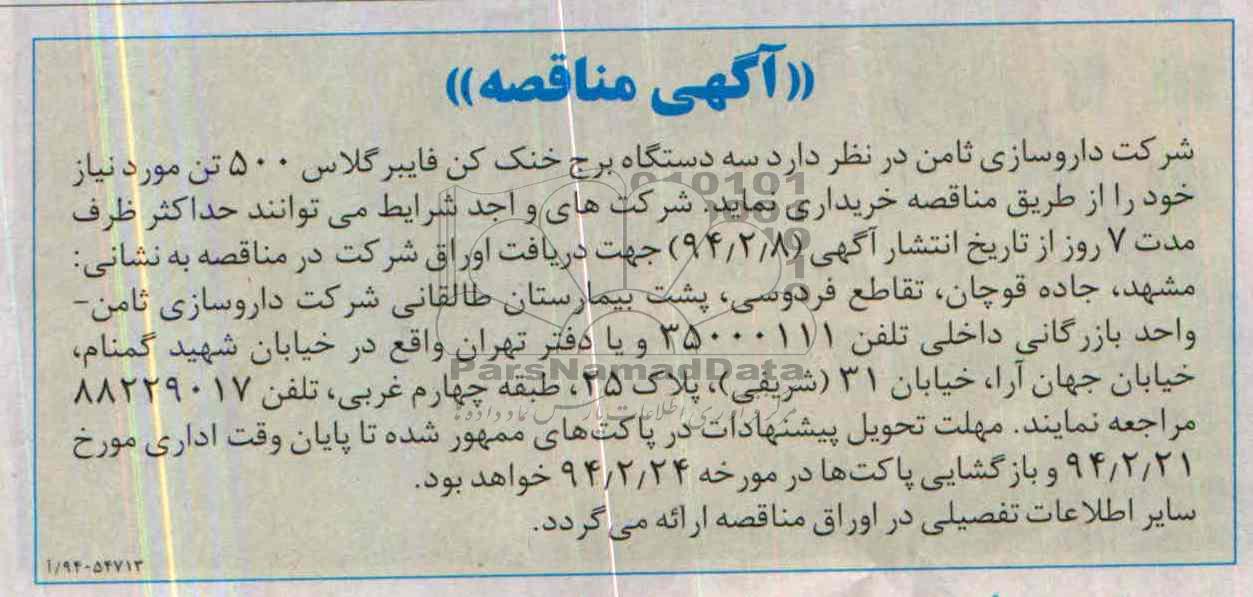 ((آگهی مناقصه))
شرکت داروسازی ثامن در نظر دارد سه دستگاه برج خنک کن فایبرگلاس ۵۰۰ تن مورد نیاز
خود را از طریق مناقصه خریداری نماید. شرکت های و اجد شرایط می توانند حداکثر ظرف
مدت ۷ روز از تاریخ انتشار آگهی (۹۴/۲/۸) جهت دریافت اوراق شرکت در مناقصه به نشانی:
مشهد، جاده قوچان، تقاطع فردوسی، پشت بیمارستان طالقانی شرکت داروسازی ثامن-
واحد بازرگانی داخلی تلفن ۳۵۰۰۰۱۱۱ و یا دفتر تهران واقع در خیابان شهید گمنام،
خیابان جهان آرا، خیابان ۳۱ (شریفی)، پلاک ۲۵، طبقه چهارم غربی، تلفن ۸۸۲۲۹۰۱۷
مراجعه نمایند. مهلت تحویل پیشنهادات در پاکت‌های ممهور شده تا پایان وقت اداری مورخ
۹۴/۲/۲۱ و بازگشایی پاکت‌ها در مورخه ۹۴/۲/۲۴ خواهد بود.
سایر اطلاعات تفصیلی در اوراق مناقصه ارائه می گردد.
۹۴-۵۴۷۱۳/آ
ParsNamadData